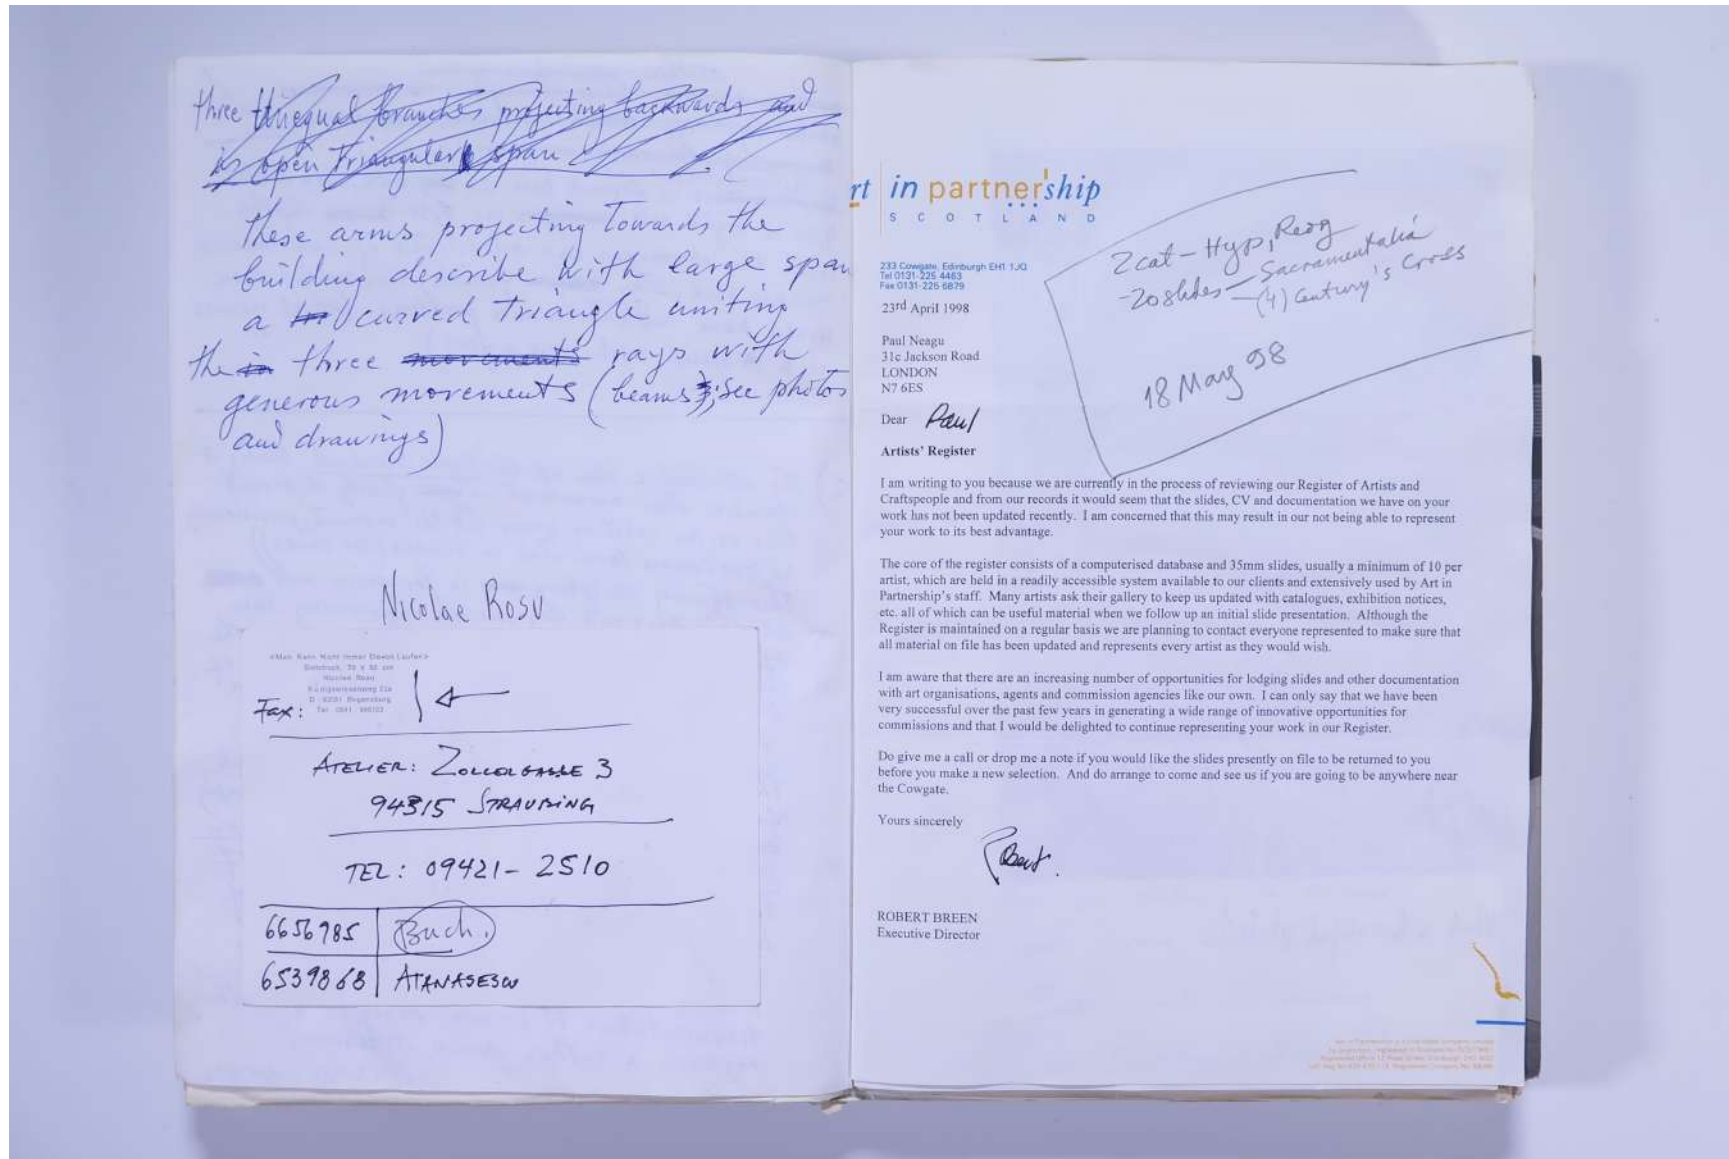 three unequal branches projecting backwards and
is open triangular span
these arms projecting towards the
building describe with large span
a curved triangle uniting
the in three movements rays with
generous movements (beams); see photos
and drawings)
Nicolae Rosu
<Man Kann Nicht Immer Davon Laufen>
Fax:
ATELIER: ZOLLERGASSE 3
94315 STRAUBING
TEL: 09421-2510
6656985 Buch.
6539868 ATANASESCU
rt in partnership
SCOTLAND
233 Cowgate, Edinburgh EH1 1JQ
Tel 0131-225 4463
Fax 0131-225 6879
2cat - Hyp, Reog
-20 slides - Sacramentalia
- (4) Century's Cross
18 May 98
23rd April 1998
Paul Neagu
31c Jackson Road
LONDON
N7 6ES
Dear Paul
Artists' Register
I am writing to you because we are currently in the process of reviewing our Register of Artists and
Craftspeople and from our records it would seem that the slides, CV and documentation we have on your
work has not been updated recently. I am concerned that this may result in our not being able to represent
your work to its best advantage.
The core of the register consists of a computerised database and 35mm slides, usually a minimum of 10 per
artist, which are held in a readily accessible system available to our clients and extensively used by Art in
Partnership's staff. Many artists ask their gallery to keep us updated with catalogues, exhibition notices,
etc. all of which can be useful material when we follow up an initial slide presentation. Although the
Register is maintained on a regular basis we are planning to contact everyone represented to make sure that
all material on file has been updated and represents every artist as they would wish.
I am aware that there are an increasing number of opportunities for lodging slides and other documentation
with art organisations, agents and commission agencies like our own. I can only say that we have been
very successful over the past few years in generating a wide range of innovative opportunities for
commissions and that I would be delighted to continue representing your work in our Register.
Do give me a call or drop me a note if you would like the slides presently on file to be returned to you
before you make a new selection. And do arrange to come and see us if you are going to be anywhere near
the Cowgate.
Yours sincerely
Robert.
ROBERT BREEN
Executive Director